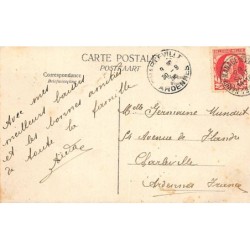 CARTE POSTALE
POSTKAART
Correspondance
CHARLEVILLE
ARDENNES
Avec mes
meilleurs baisers
et les bonnes amitiés
de toute la famille
Melle Germaine
Avenue de Flandre
Charleville
Ardennes France